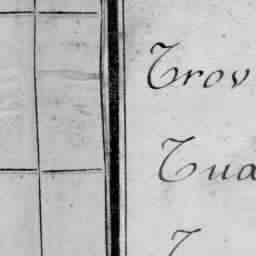 Trov
Tua
T